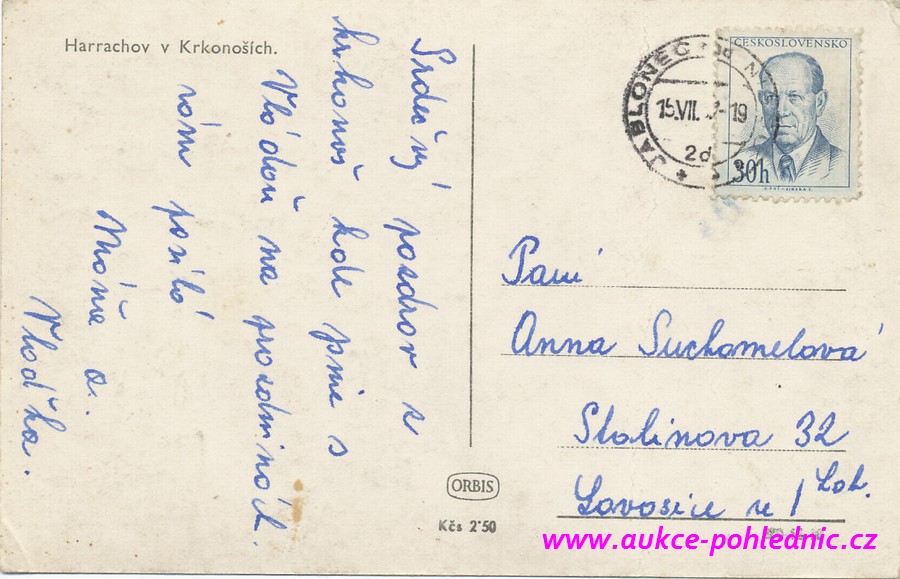 Harrachov v Krkonoších.
Srdečný pozdrav z
krkonoš kde sme s
Vláďou na prázdninách
vám posílá
Máňa a.
Vlaďka.
ČESKOSLOVENSKO
30h
JABLONEC
15.VII. 19
2d
Paní
Anna Suchomelová
Stalinova 32
Lovosice n/Lab.
ORBIS
Kčs 2·50
www.aukce-pohlednic.cz